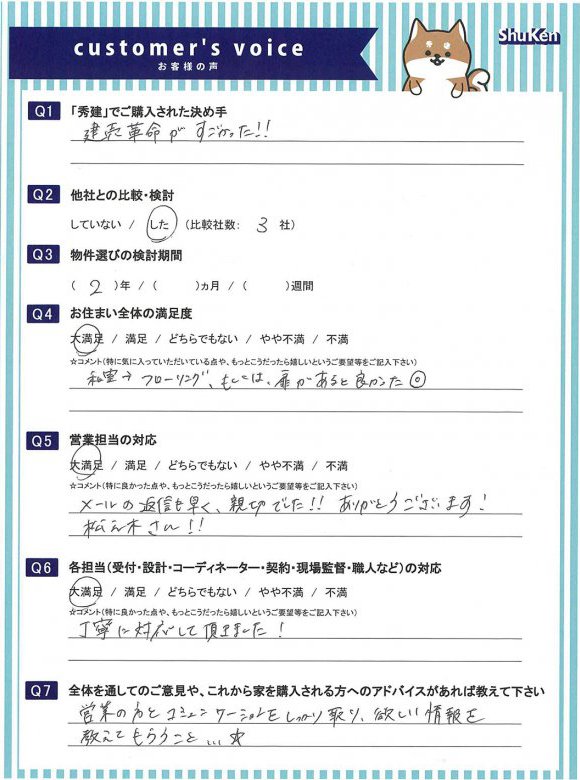 customer's voice
お客様の声
ShuKen
Q1 「秀建」でご購入された決め手
建売革命がすごかった!!
Q2 他社との比較・検討
していない / した (比較社数: 3 社)
Q3 物件選びの検討期間
( 2 )年 / ( )ヵ月 / ( )週間
Q4 お住まい全体の満足度
大満足 / 満足 / どちらでもない / やや不満 / 不満
☆コメント(特に気に入っていただいている点や、もっとこうだったら嬉しいというご要望等をご記入下さい)
和室→フローリング、もしくは、扉があると良かった◎
Q5 営業担当の対応
大満足 / 満足 / どちらでもない / やや不満 / 不満
☆コメント(特に良かった点や、もっとこうだったら嬉しいというご要望等をご記入下さい)
メールの返信も早く、親切でした!! ありがとうございます!
さん!!
Q6 各担当(受付・設計・コーディネーター・契約・現場監督・職人など)の対応
大満足 / 満足 / どちらでもない / やや不満 / 不満
☆コメント(特に良かった点や、もっとこうだったら嬉しいというご要望等をご記入下さい)
丁寧に対応して頂きました!
Q7 全体を通してのご意見や、これから家を購入される方へのアドバイスがあれば教えて下さい
営業の方とコミュニケーションをしっかり取り、欲しい情報を
教えてもらうこと…☆